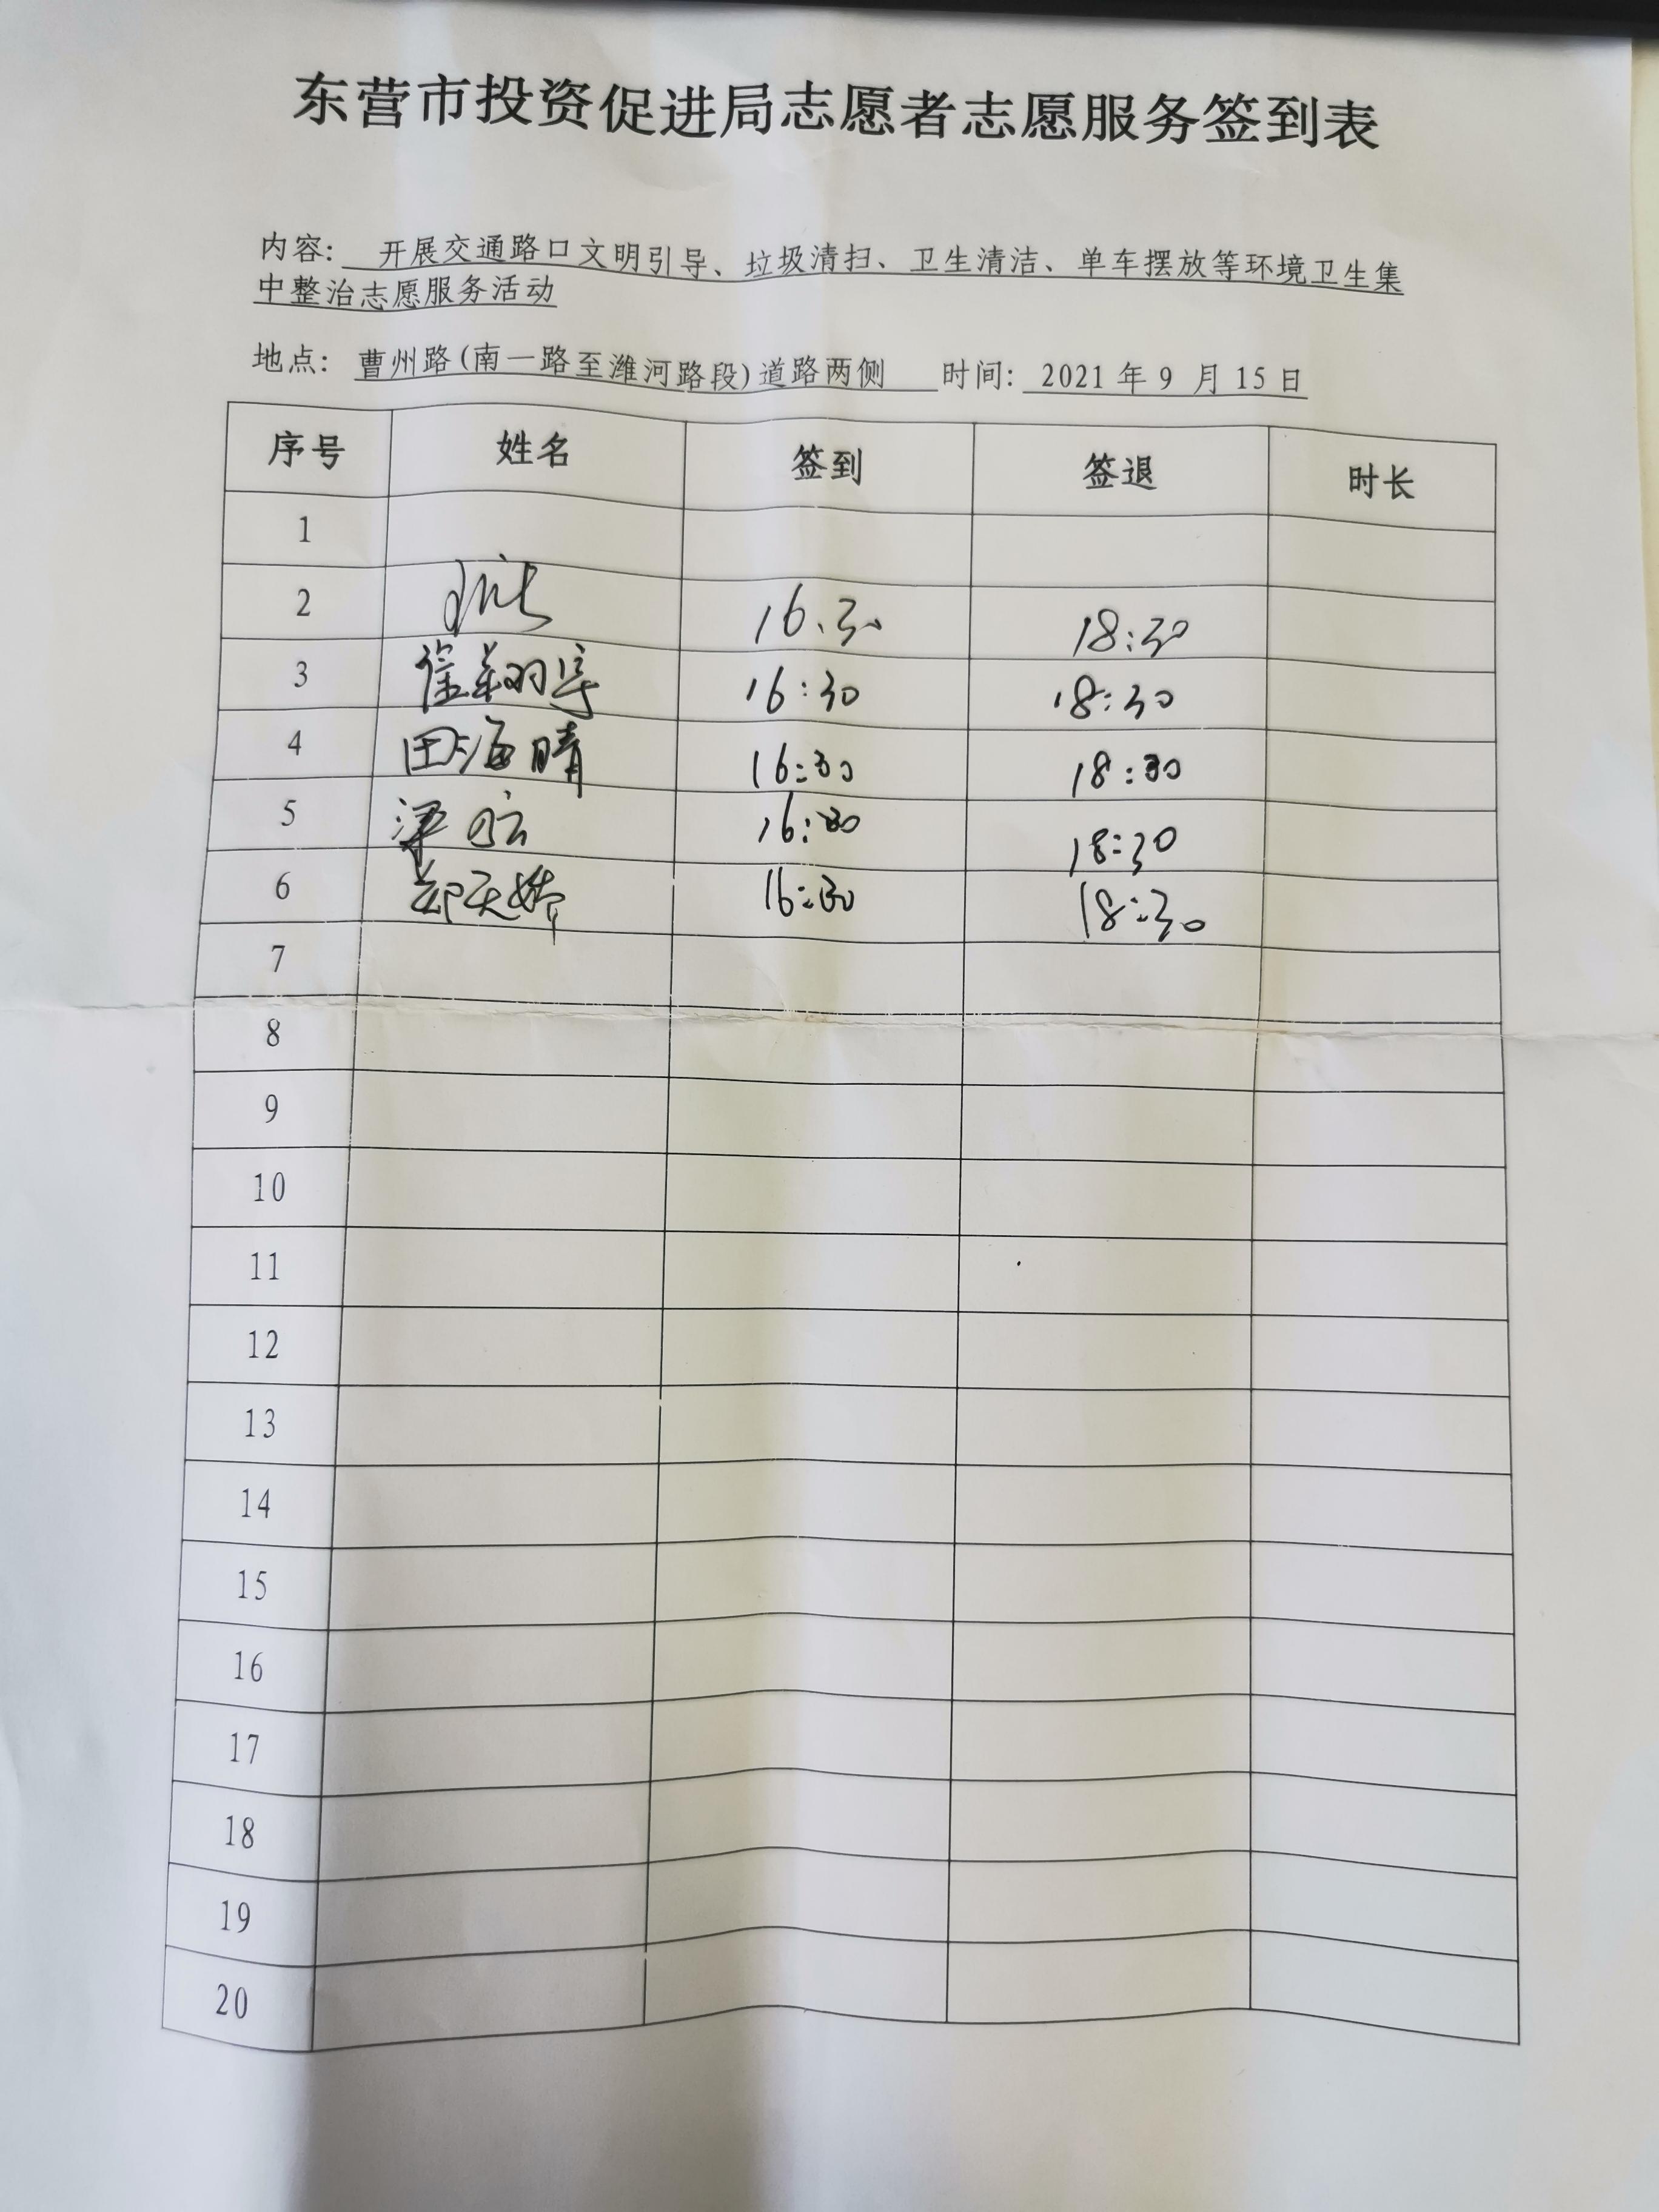 东营市投资促进局志愿者志愿服务签到表
内容: 开展交通路口文明引导、垃圾清扫、卫生清洁、单车摆放等环境卫生集
中整治志愿服务活动
地点: 曹州路(南一路至潍河路段)道路两侧 时间: 2021 年 9 月 15 日
序号 姓名 签到 签退 时长
1
2 16:30 18:30
3 16:30 18:30
4 田海晴 16:30 18:30
5 梁 16:30 18:30
6 16:30 18:30
7
8
9
10
11
12
13
14
15
16
17
18
19
20